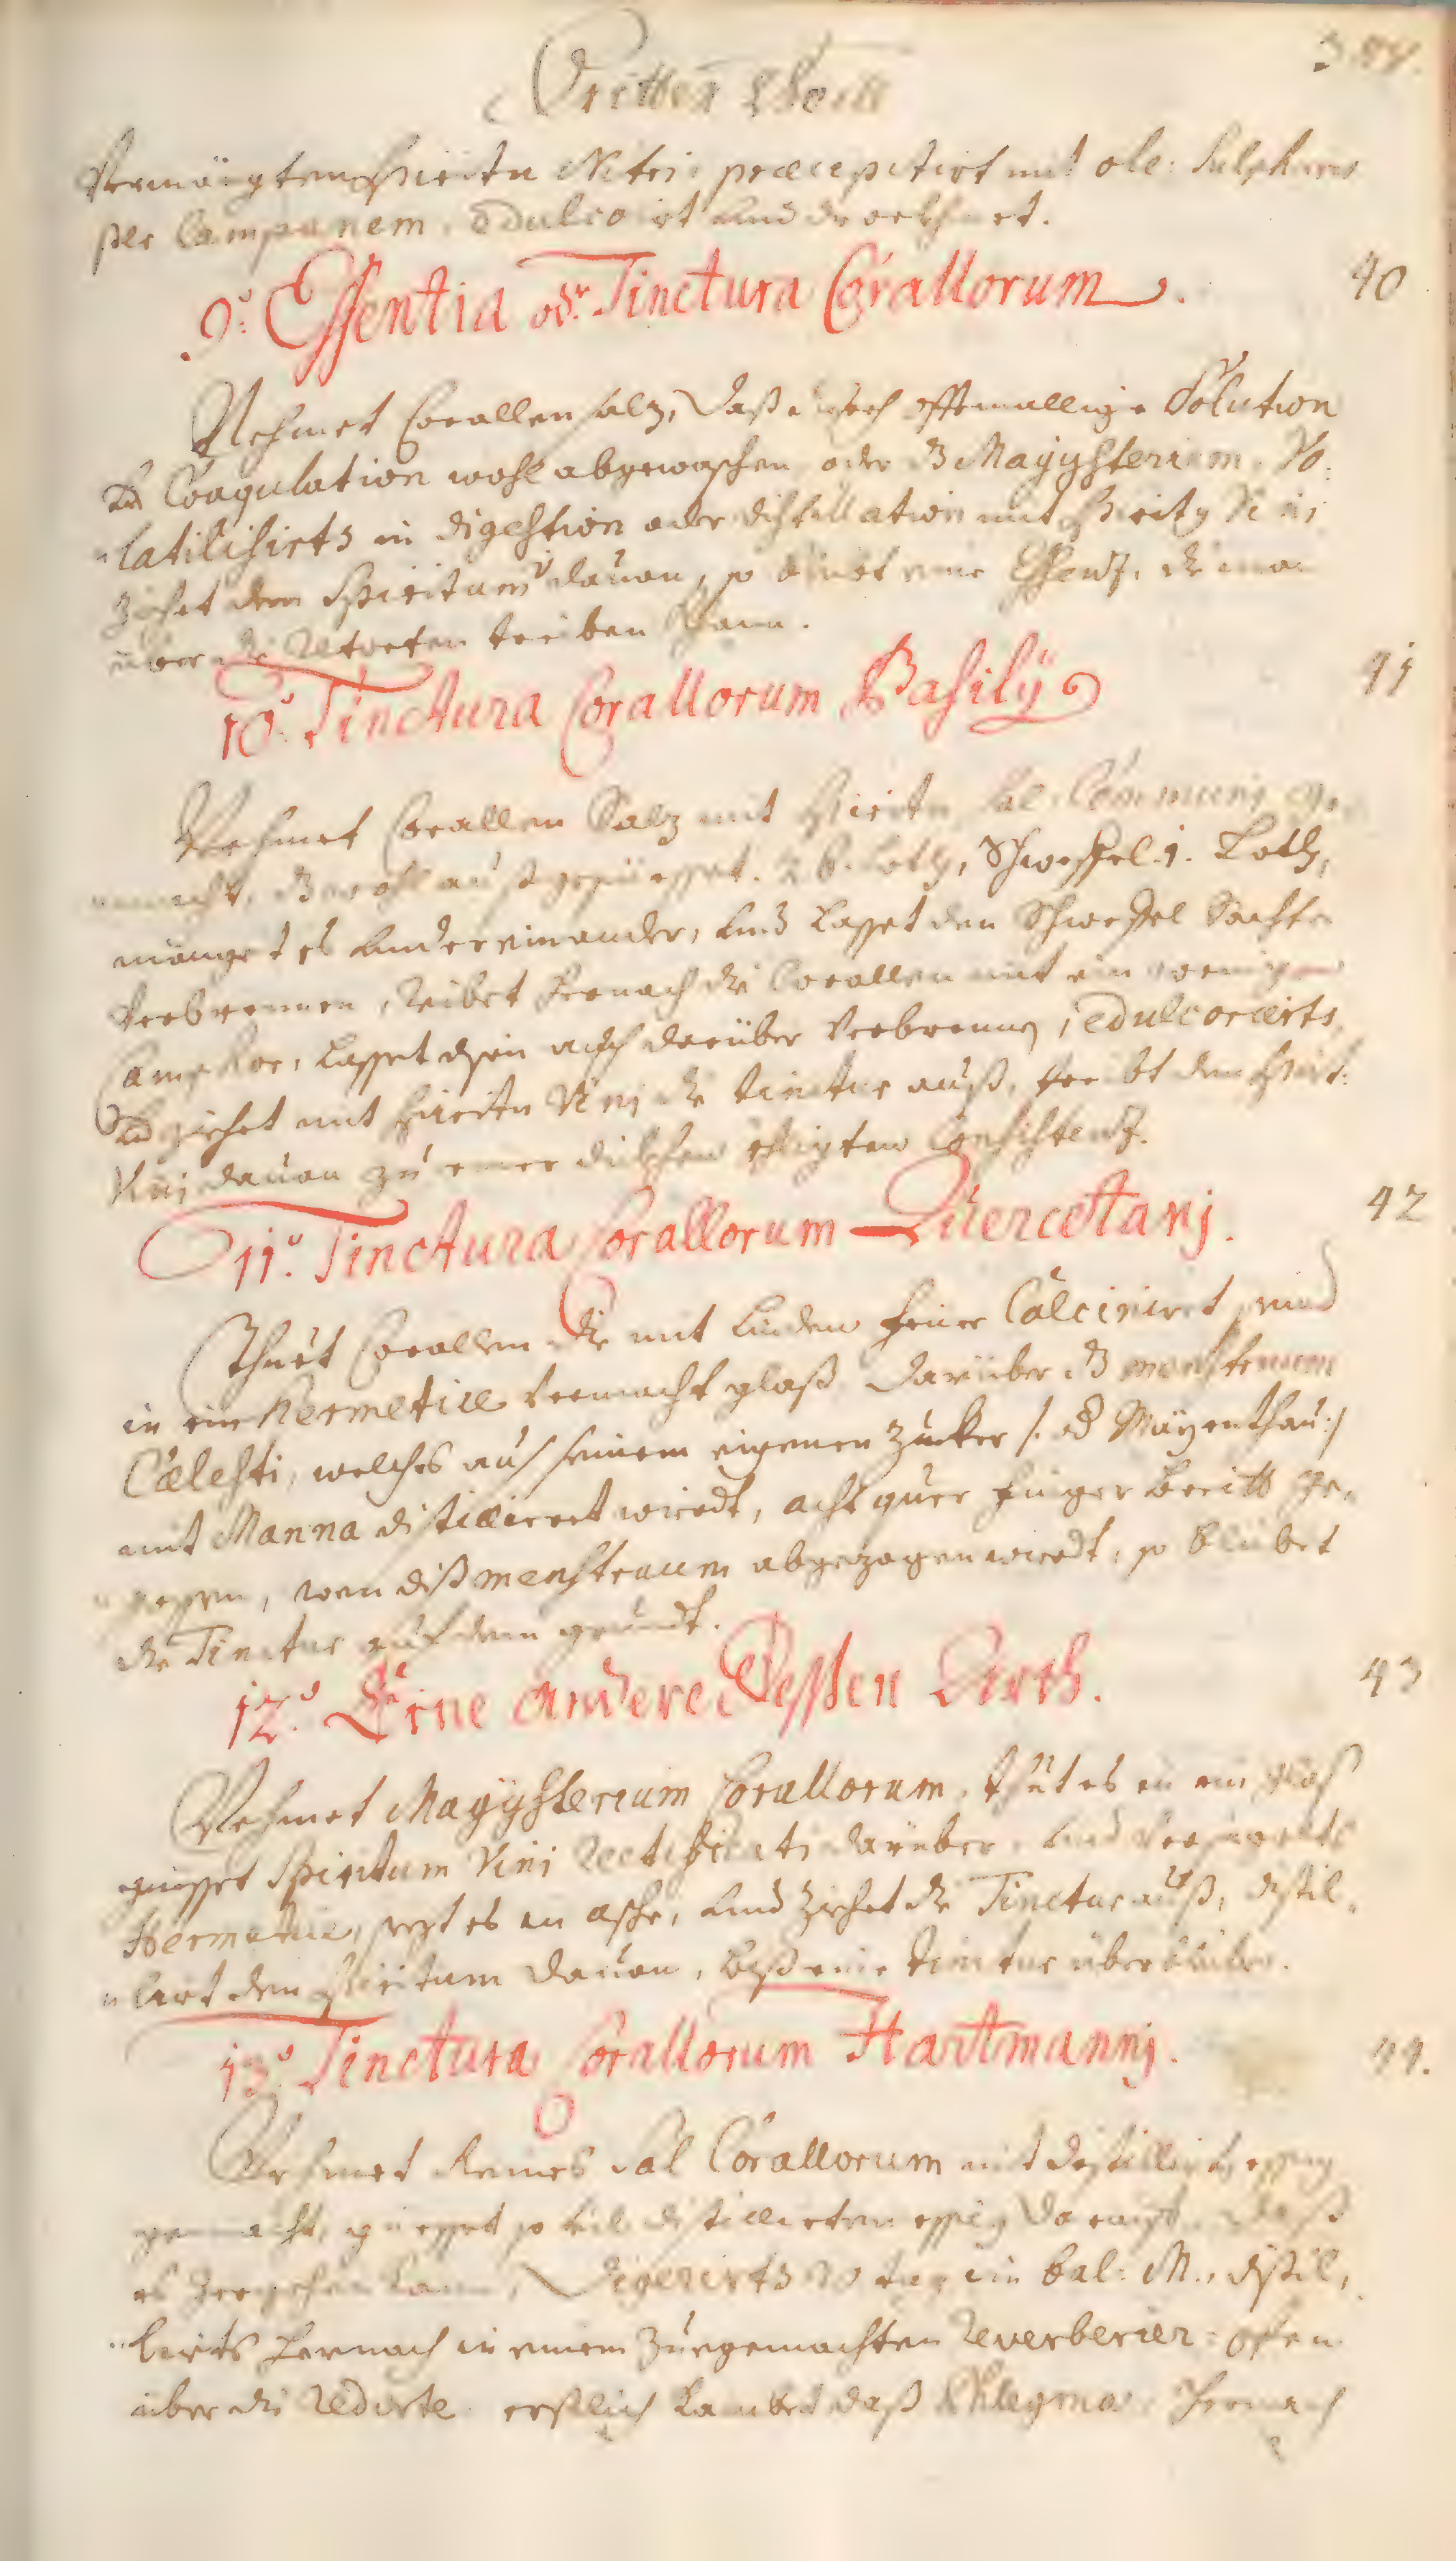 Dritter Theill
Vermängten Spiritu Nitri, præcepitirt mit ole: Sulphuris
per Campanem, Edulcorirt und drocknet.
9.° Essentia odr. Tinctura Corallorum. 40
Nehmet Corallen salz, daß durch offtmallige Solution
und Coagulation wohl abgewaschen oder dz Magÿsterium Vo,
latilisirts in digestion oder distillation mit Spirity Vini
ziehet den Spiritum V davon, so bleibt eine Essentz, die man
über die Retorten treiben kann.
10.° Tinctura Corallorum Basilÿ 41
Nehmet Corallen Salz mit Spiritu Sal Communis ge,
macht, dz wohl außgesüesset. 26. Loth, Schweffel 1. Loth,
mänget es undereinander, und lasset den Schweffel Sachte
verbrennen, reibet hernach die Corallen mit ein wenigen
Camphor, lasset ihn auch darüber verbrennen, edulcorirts
und ziehet mit Spiritu Vinj die tinctur auß, treibt den Spirit:
Vinj davon zu einer dickhen Consistentz.
11.° Tinctura Corallorum Quercetanj. 42
Thuet Corallen die mit linden feuer Calciniret seind
in ein Hermetice vermacht glaß darüber dz menstruum
Cælesti, welches aus seinem eigenen Zucker /: od Maÿenthau:/
mit Manna distillieret wirdt, acht quer finger breitt ge,
gossen, wen diß menstruum abgezogen wirdt, so bleibet
die Tinctur auf dem grundt.
12.° Eine andere Dessen Arth. 43
Nehmet Magÿsterium Corallorum, thüt es in ein glaß
giesset Spiritum Vini Rectificati darüber, und vermachts
Hermetice, sezt es in asche, und ziehet die Tinctur auß, distil,
lirt den Spiritum davon, biß eine tinctur überbleibe.
13.° Tinctura Corallorum Hartmannj. 44.
Nehmet Reines Sal Corallorum mit distillirten essig
gemacht, giesset so vil distillirten essig darauf, daß
es zergehen kann, Digerirts 20 tag in bal: M., distil,
lirts hernach in einem zuegemachten Reverberier=offen
über die Redorte erstlich kombt daß Phlegma, hernach